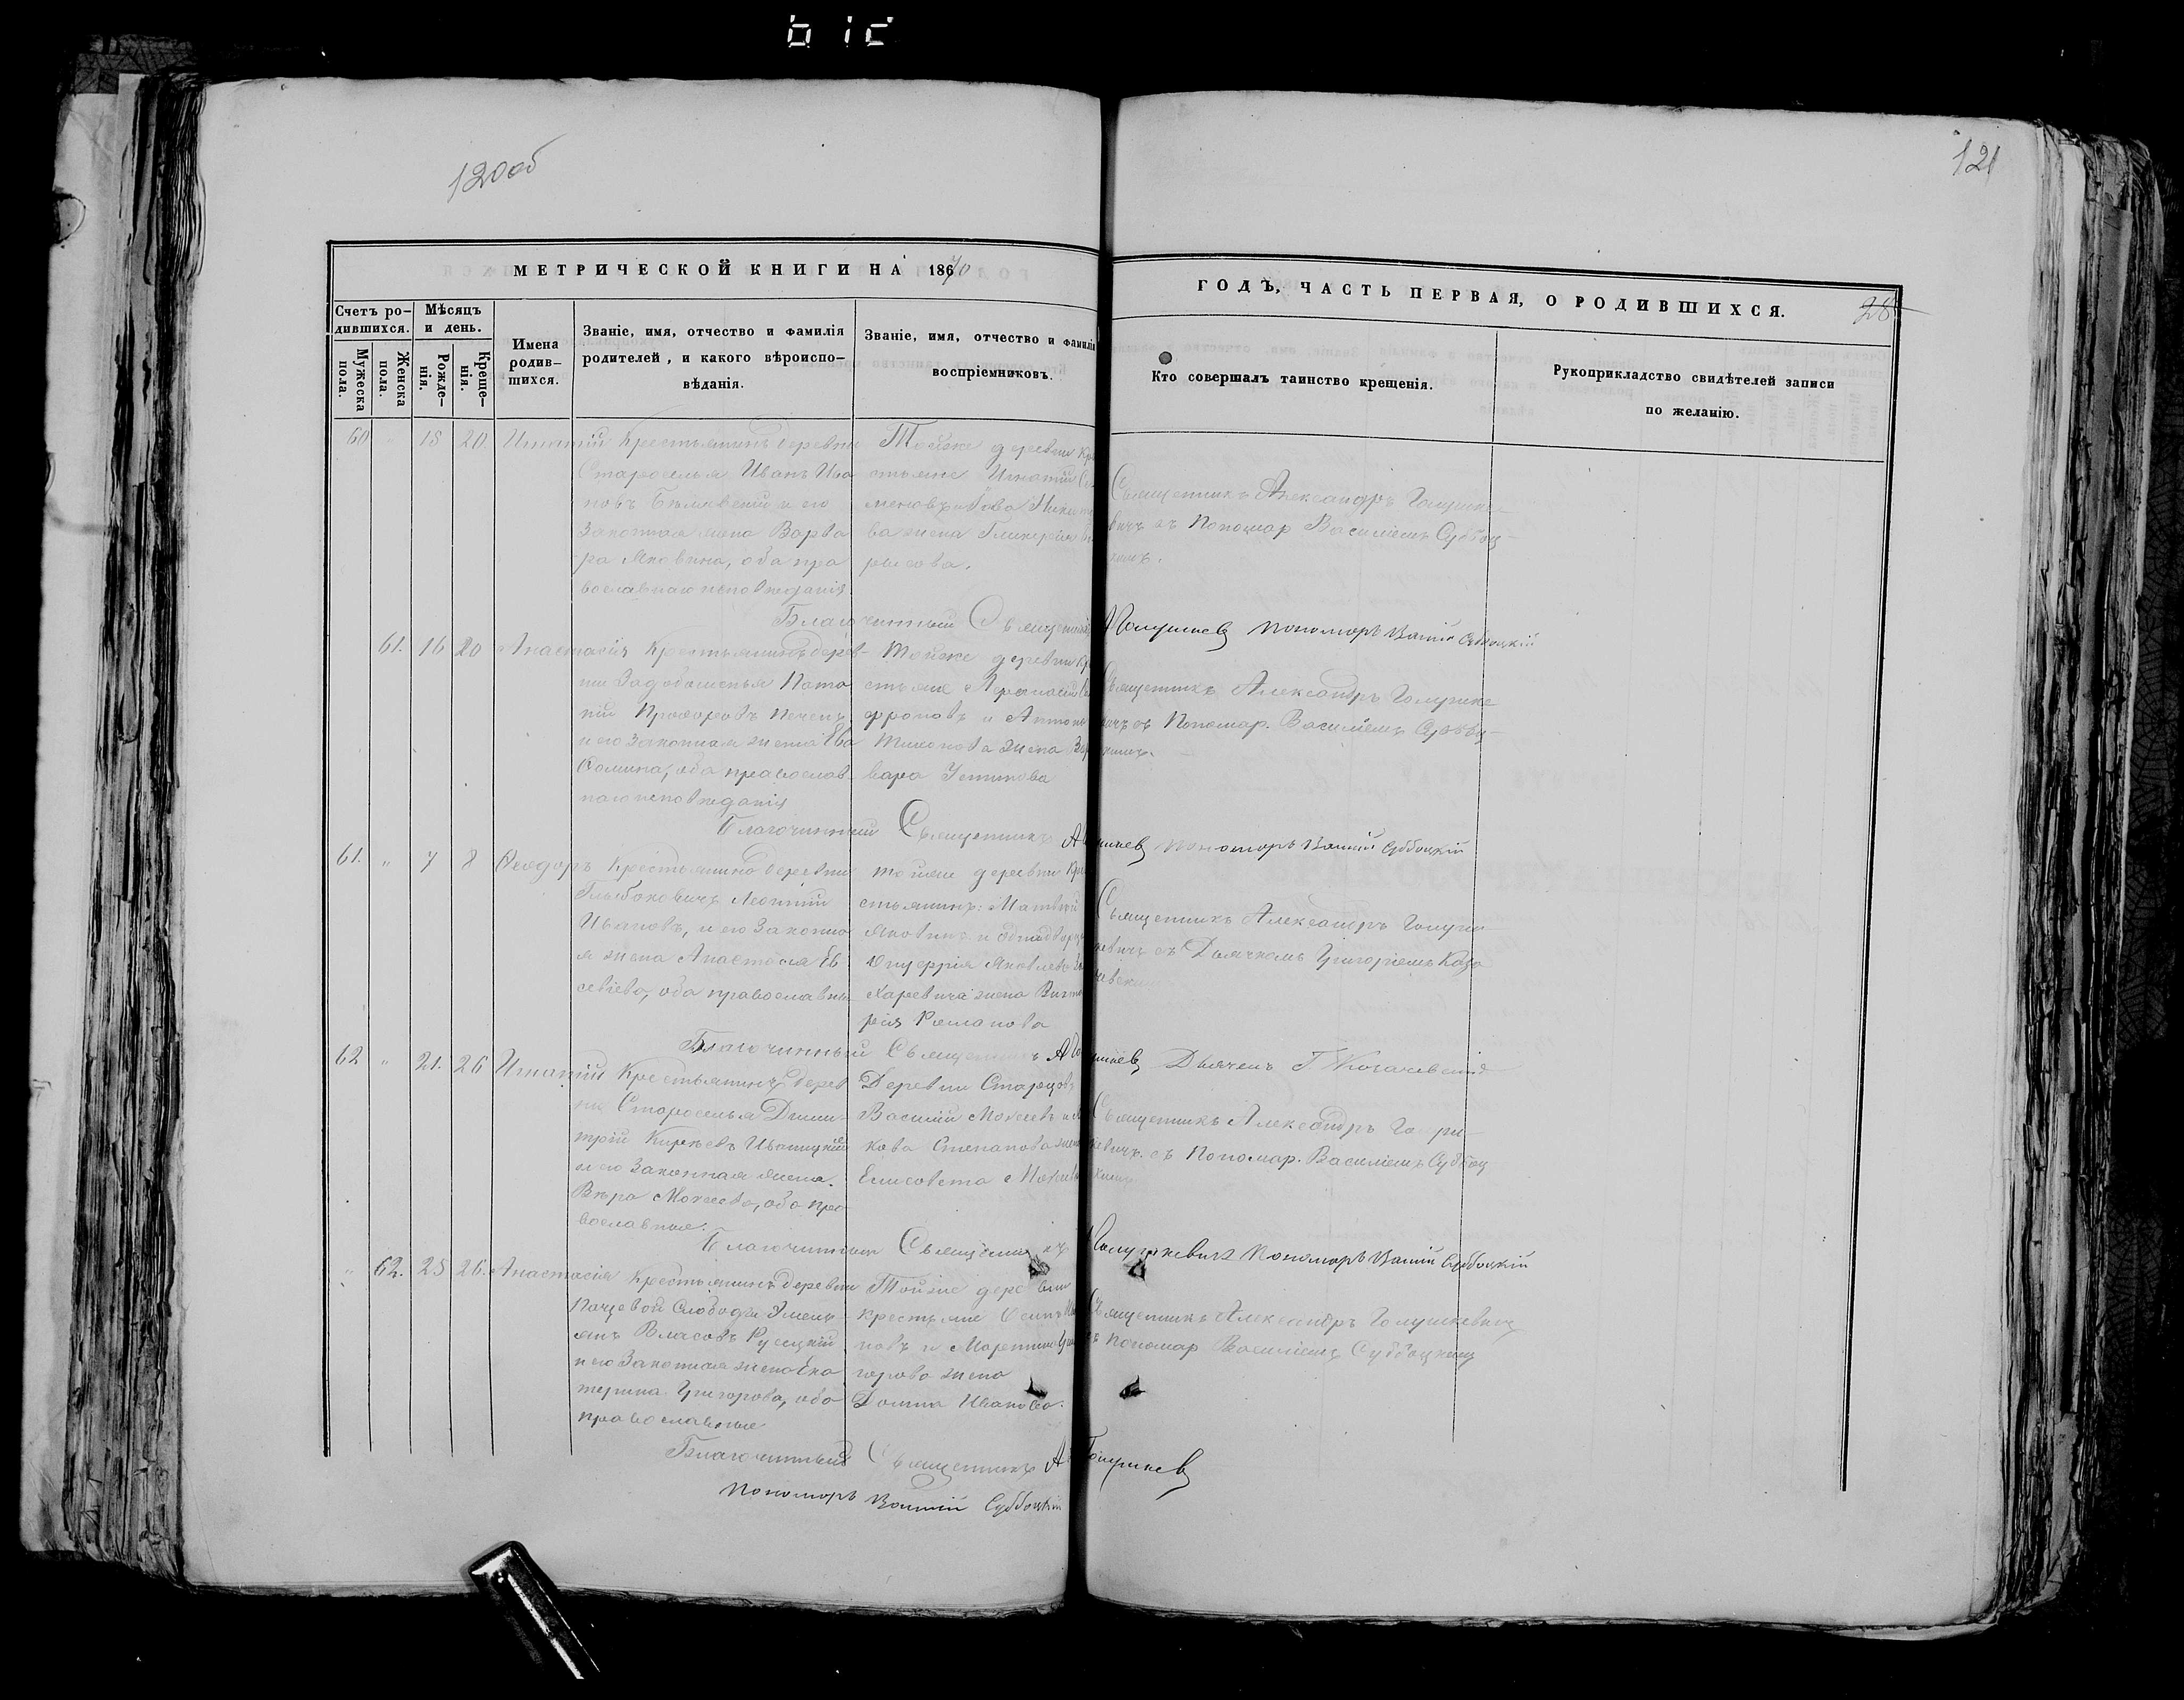 120об
121
МЕТРИЧЕСКОЙ КНИГИ НА 1870
ГОДЪ, ЧАСТЬ ПЕРВАЯ, О РОДИВШИХСЯ.
28
Счетъ ро-
дившихся.
Мужеска
пола.
Женска
пола.
Мѣсяцъ
и день.
Рожде-
нія.
Креще-
нія.
Имена
родив-
шихся.
Званіе, имя, отчество и фамилія
родителей, и какого вѣроиспо-
вѣданія.
Званіе, имя, отчество и фамилія
воспріемниковъ.
Кто совершалъ таинство крещенія.
Рукоприкладство свидѣтелей записи
по желанію.
60 " 18 20 Игнатій
Крестьянинъ деревни
Староселья Иванъ Ива
новъ и его
законная жена Варва
ра Яковлева, оба пра
вославнаго исповеданія
Тойже деревни Кре
стьяне Игнатій
жена Гликерія
рисова.
Священникъ Александръ Голушке-
вичъ съ Пономар Василіемъ Суббоц-
кимъ.
Благочинный Священникъ Голушкев Пономарь Василій Суббоцкій
61. 16 20 Анастасія
Крестьянинъ дерев-
ни
Прохоровъ
и его законная жена Ева
Фомина, оба православ-
наго исповеданія
Тойже деревни Кре
стьяне
фроновъ и Антона
Тихонова жена Вар
вара Устинова
Священникъ Александръ Голушке
вичъ съ Пономар. Василіемъ Суббоц-
кимъ.
Благочинный Священникъ А Голушкев Пономарь Василій Суббоцкій
61. " 7 8 Феодоръ
Крестьянинъ деревни
Глыбоковичъ Леонтій
Ивановъ, и его законна
я жена Анастасія Ев
сеева, оба православны
тойже деревни Кре
стьянинъ: Матвей
Яковлевъ и однодворца
Онуфрія Яковлева За
харевича жена
рія Романова
Священникъ Александръ Голуш
кевичъ съ Дьячкомъ Григоріемъ
Благочинный Священникъ А Голушкев Дьячекъ Г
62 " 21. 26 Игнатій
Крестьянинъ дерев
ни Староселья Дими-
трій Иваницкій
и его законная жена
Вера Моисеева, оба пра
вославные.
Деревни
Василій Моисеевъ и Я
кова Степанова жена
Елисавета
Священникъ Александръ Голуш-
кевичъ. съ Пономар. Василіемъ Суббоц
кимъ
Благочинный Священникъ Голушкевичъ Пономарь Василій Суббоцкій
" 62. 25 26. Анастасія
Крестьянинъ деревни
Слободы Емель-
янъ Власовъ Русецкій
и его законная жена Ека
терина Григорова, оба
православные
Тойже деревни
крестьяне
новъ и Мартина Гри
горова жена
Домна Иванова.
Священникъ Александръ Голушкевичъ
съ Пономар Василіемъ Суббоцкимъ
Благочинный Священникъ А Голушкев
Пономарь Василій Суббоцкій